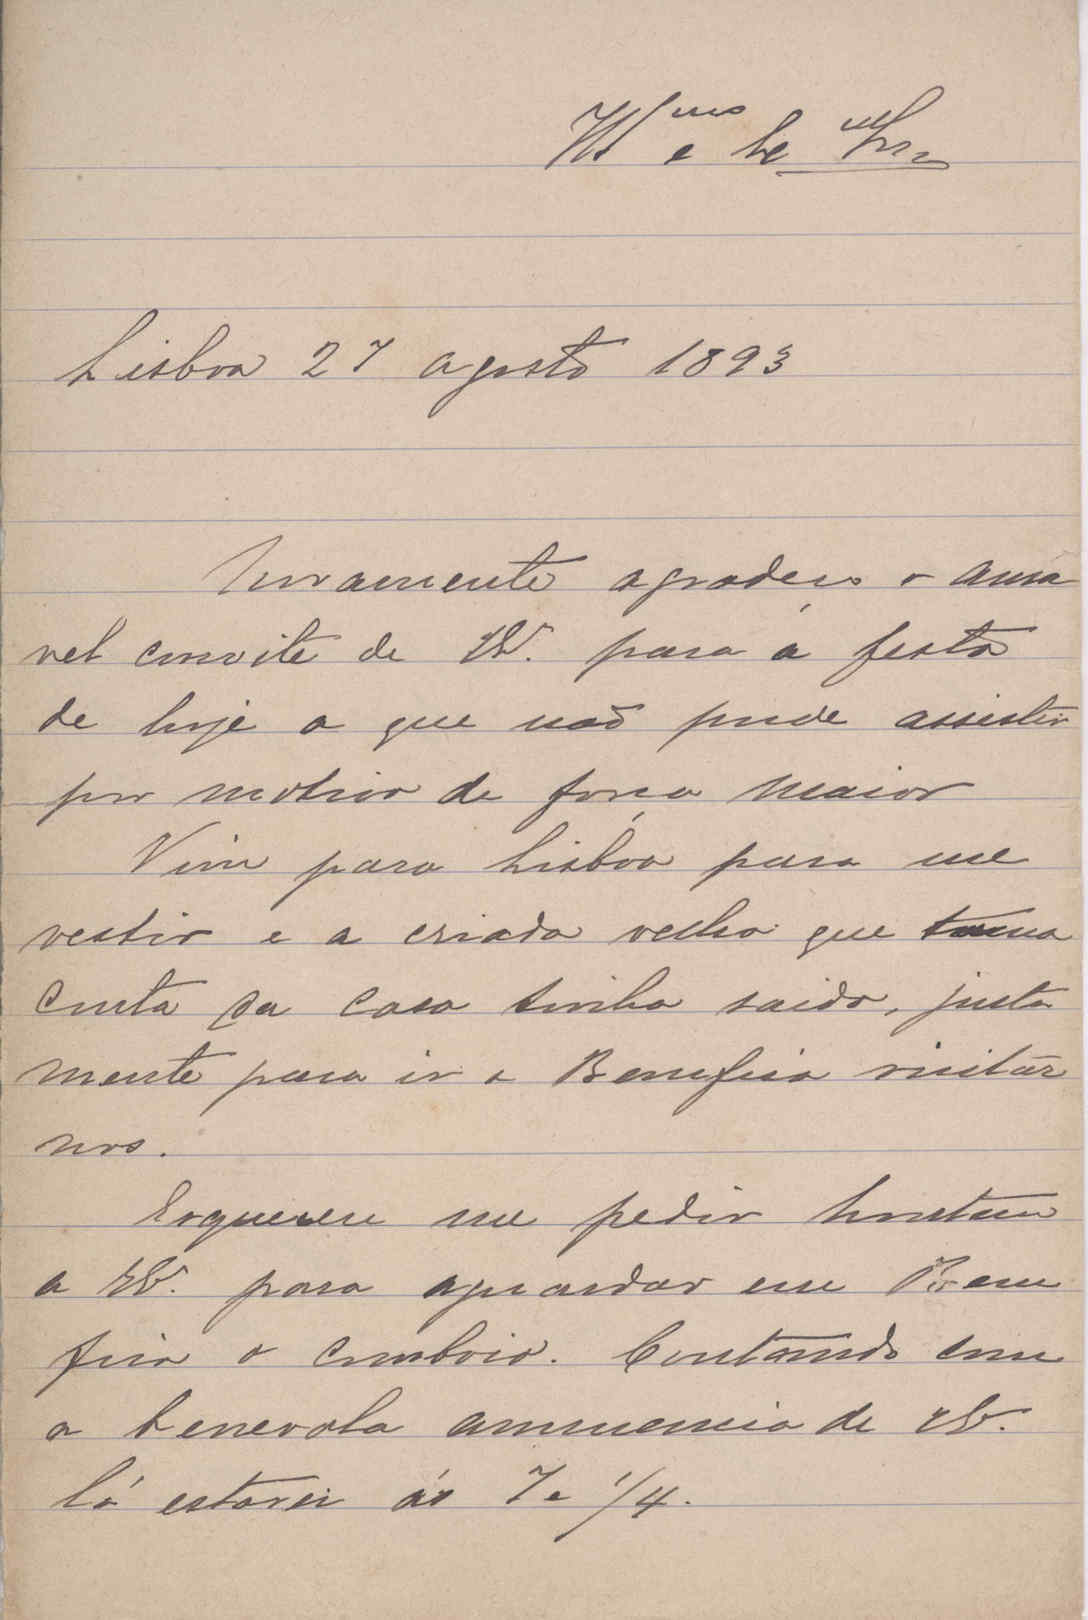 Ill.mo e Ex.mo Snr.
Lisboa 27 agosto 1893
Novamente agradeço o ama
vel convite de V. Ex.ª para a festa
de hoje a que não pude assistir
por motivo de força maior
Vim para Lisboa para me
vestir e a criada velha que toma
conta da casa tinha saido, justa
mente para ir a Bemfica visitar
nos.
Esqueceu me pedir hontem
a V. Ex.ª para aguardar em Bem
fica o comboio. Contando com
a benevola annuencia de V. Ex.ª
lá estarei ás 7 e 1/4.